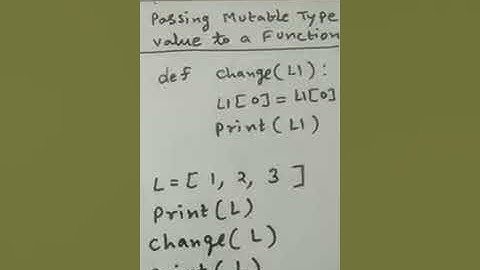 Passing Mutable Type
value to a Function
def change(L1):
L1[0]=L1[0]
print(L1)
L=[1, 2, 3]
Print(L)
Change(L)
print(L)